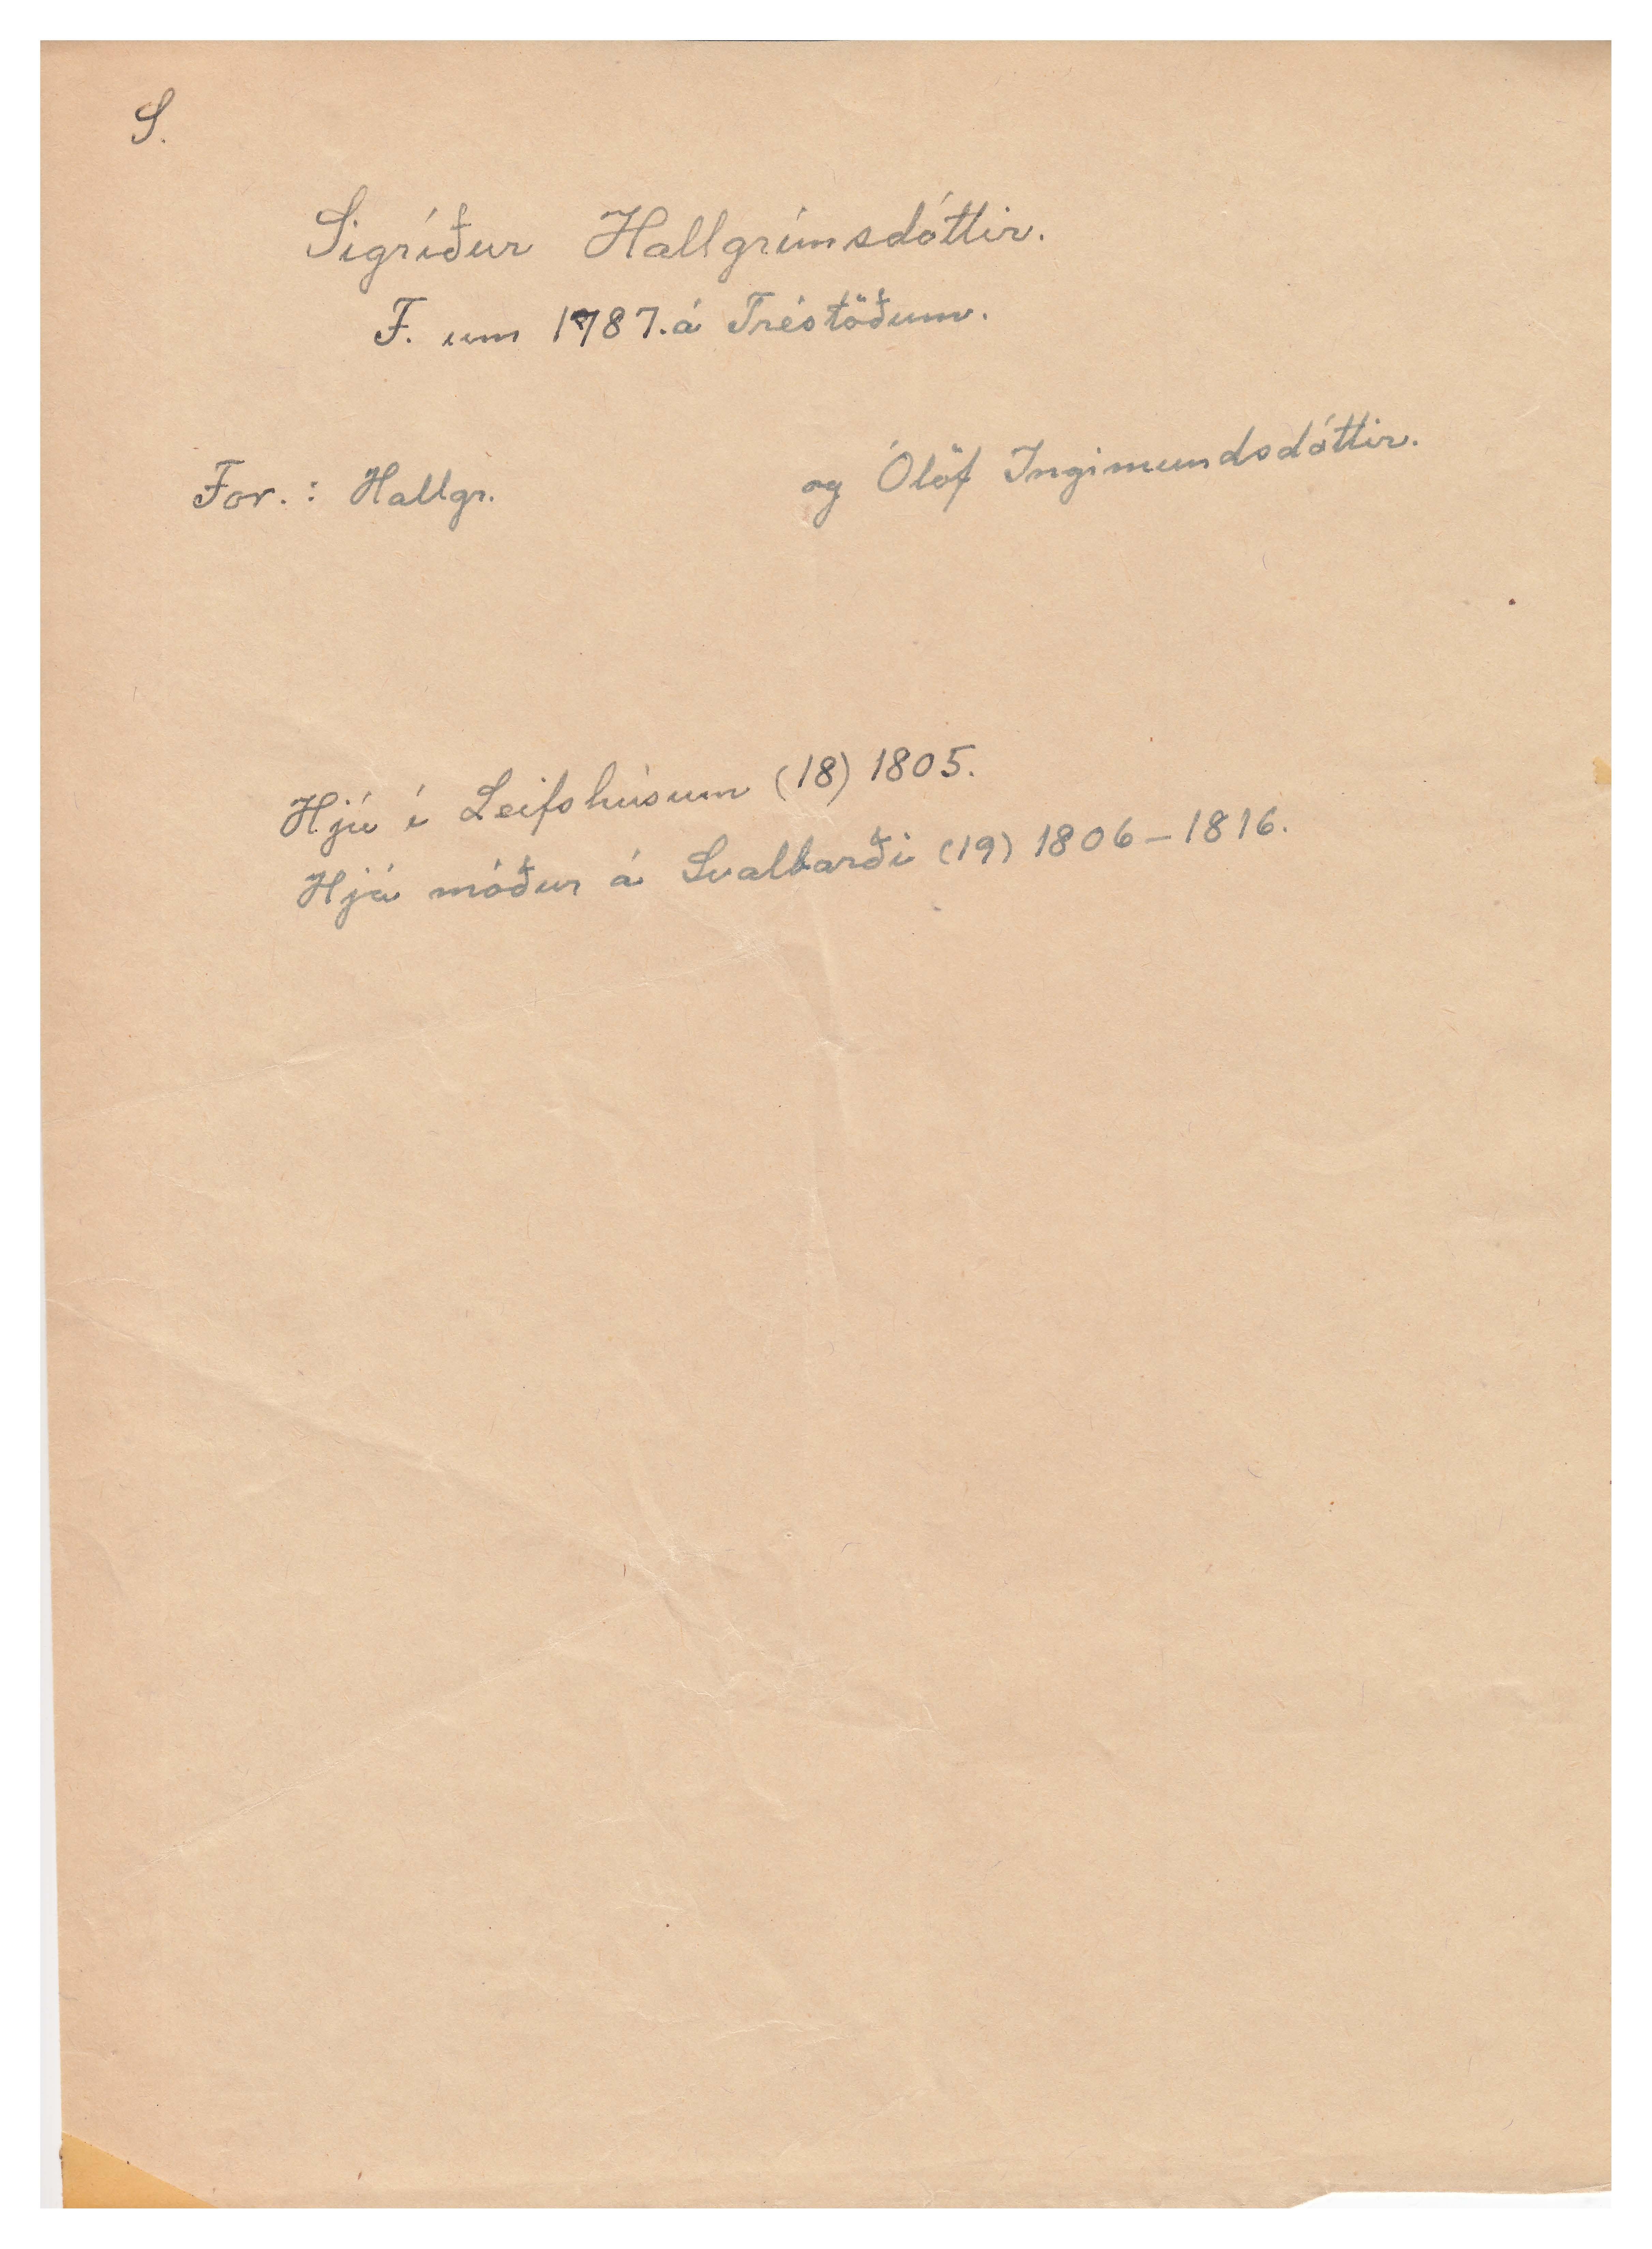 S.
Sigríður Hallgrímsdóttir.
F. um 1787. á Tréstöðum.
For.: Hallgr. og Ólöf Ingimundsdóttir.
Hjú í Leifshúsum (18) 1805.
Hjá móður á Svalbarði (19) 1806-1816.